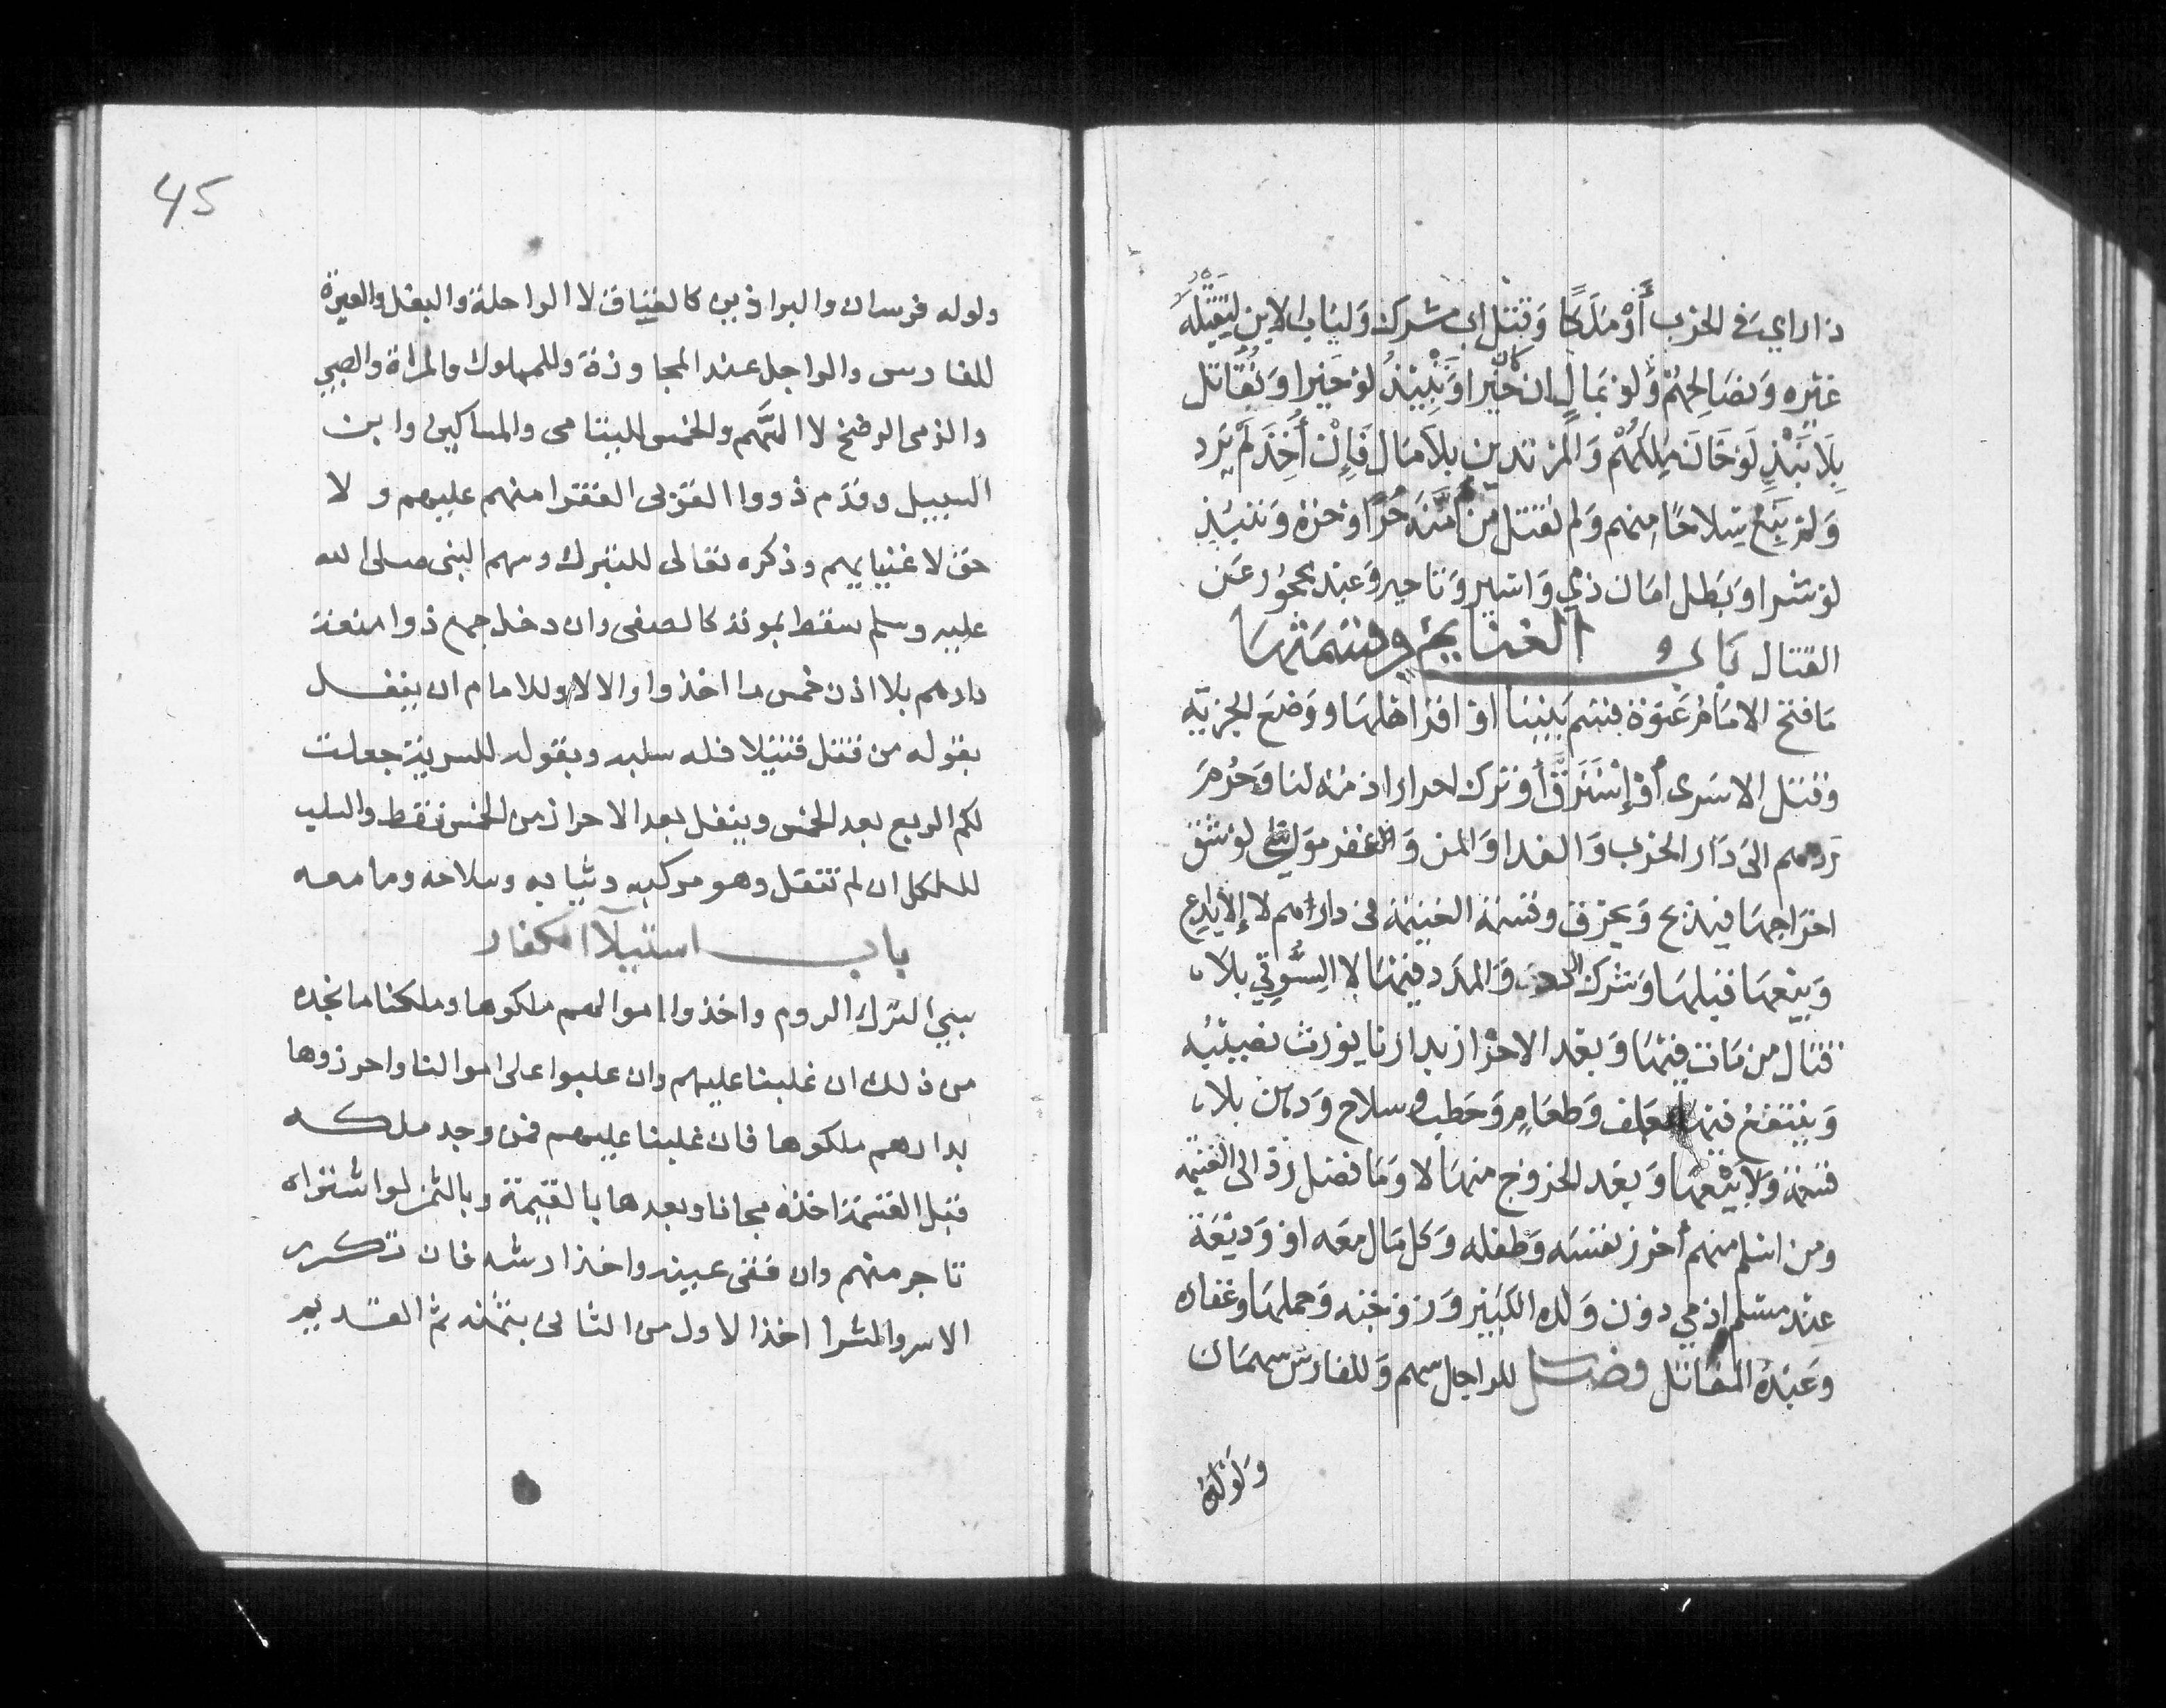 ذا راي في الحرب أو ملكا وقتل اب مشرك وليأب الابن ليقتله
غيره ونصالحهم ولو بمال ان كان خيرا وننبذ لو خيرا ونقاتل
بلا نبذ لو خان ملكهم والمرتدين بلا مال فإن أخذ لم يرد
ولم نبع سلاحا منهم ولم نقتل من أمنه حر او حرة وننبذ
لو شرا وبطل امان ذمي واسير وتاجر وعبد محجور عن
القتال باب الغنايم وقسمتها
ما فتح الامام عنوة قسم بيننا او اقر اهلها ووضع الجزية
وقتل الاسرى أو إسترق أو ترك احرارا ذمة لنا وحرم
ردهم الى دار الحرب والفدا والمن وعقر مواش لو شق
اخراجها فيذبح ويحرق وقسمة الغنيمة في دارهم لا لإلايداع
وبيعها قبلها وشرك الردء والمدد فيها لا السوقي بلا
قتال من مات فيها وبعد الاحراز بدارنا يورث نصيبه
وينتفع فيها بعلف وطعام وحطب وسلاح ودهن بلا
قسمة ولا يبيعها وبعد الخروج منها لا وما فضل رد الى الغنيمه
ومن اسلم منهم أحرز نفسه وطفله وكل مال معه او وديعة
عند مسلم او ذمي دون ولده الكبير وزوجته وحملها وعقاره
وعبده المقاتل فصل للراجل سهم وللفارس سهمان
ولوله
45
ولوله فرسان والبراذين كالعتاق لا الراحلة والبغل والعبرة
للفارس والراجل عند المجاوزة وللمملوك والمراة والصبي
والذمى الرضخ لا السهم والخمس لليتامى والمساكين وابن
السبيل وقدم ذووا القربى الفقرا منهم عليهم ولا
حق لاغنيايهم وذكره تعالى للتبرك وسهم النبى صلى الله
عليه وسلم سقط بموته كالصفى وان دخل جمع ذوا منعة
دارهم بلا اذن خمس ما اخذوا والا لا وللامام ان ينفل
بقوله من قتل قتيلا فله سلبه وبقوله للسرية جعلت
لكم الربع بعد الخمس وينفل بعد الاحراز من الخمس فقط والسلب
للكل ان لم ينفل وهو مركبه وثيابه وسلاحه وما معه
باب استيلآ الكفار
سبي الترك الروم واخذوا اموالهم ملكوها وملكنا ما نجده
من ذلك ان غلبنا عليهم وان غلبوا على اموالنا واحرزوها
بدارهم ملكوها فان غلبنا عليهم فمن وجد ملكه
قبل القسمة اخذه مجانا وبعدها بالقيمة وبالثمن لو اشتراه
تاجر منهم وان فقى عينه واخذ ارشه فان تكرر
الاسر والشرا اخذ الاول من الثانى بثمنه ثم القديم